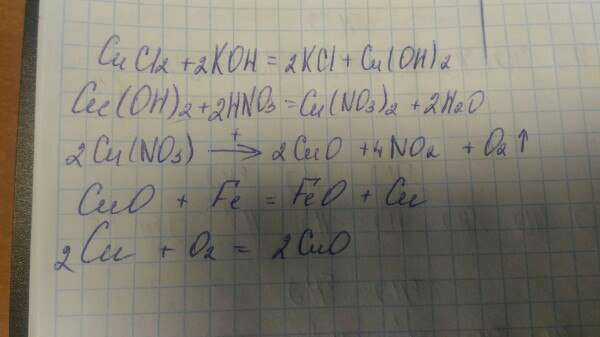 CuCl2 + 2KOH = 2KCl + Cu(OH)2
Cu(OH)2 + 2HNO3 = Cu(NO3)2 + 2H2O
2Cu(NO3) —t→ 2CuO + 4NO2 + O2↑
CuO + Fe = FeO + Cu
2Cu + O2 = 2CuO